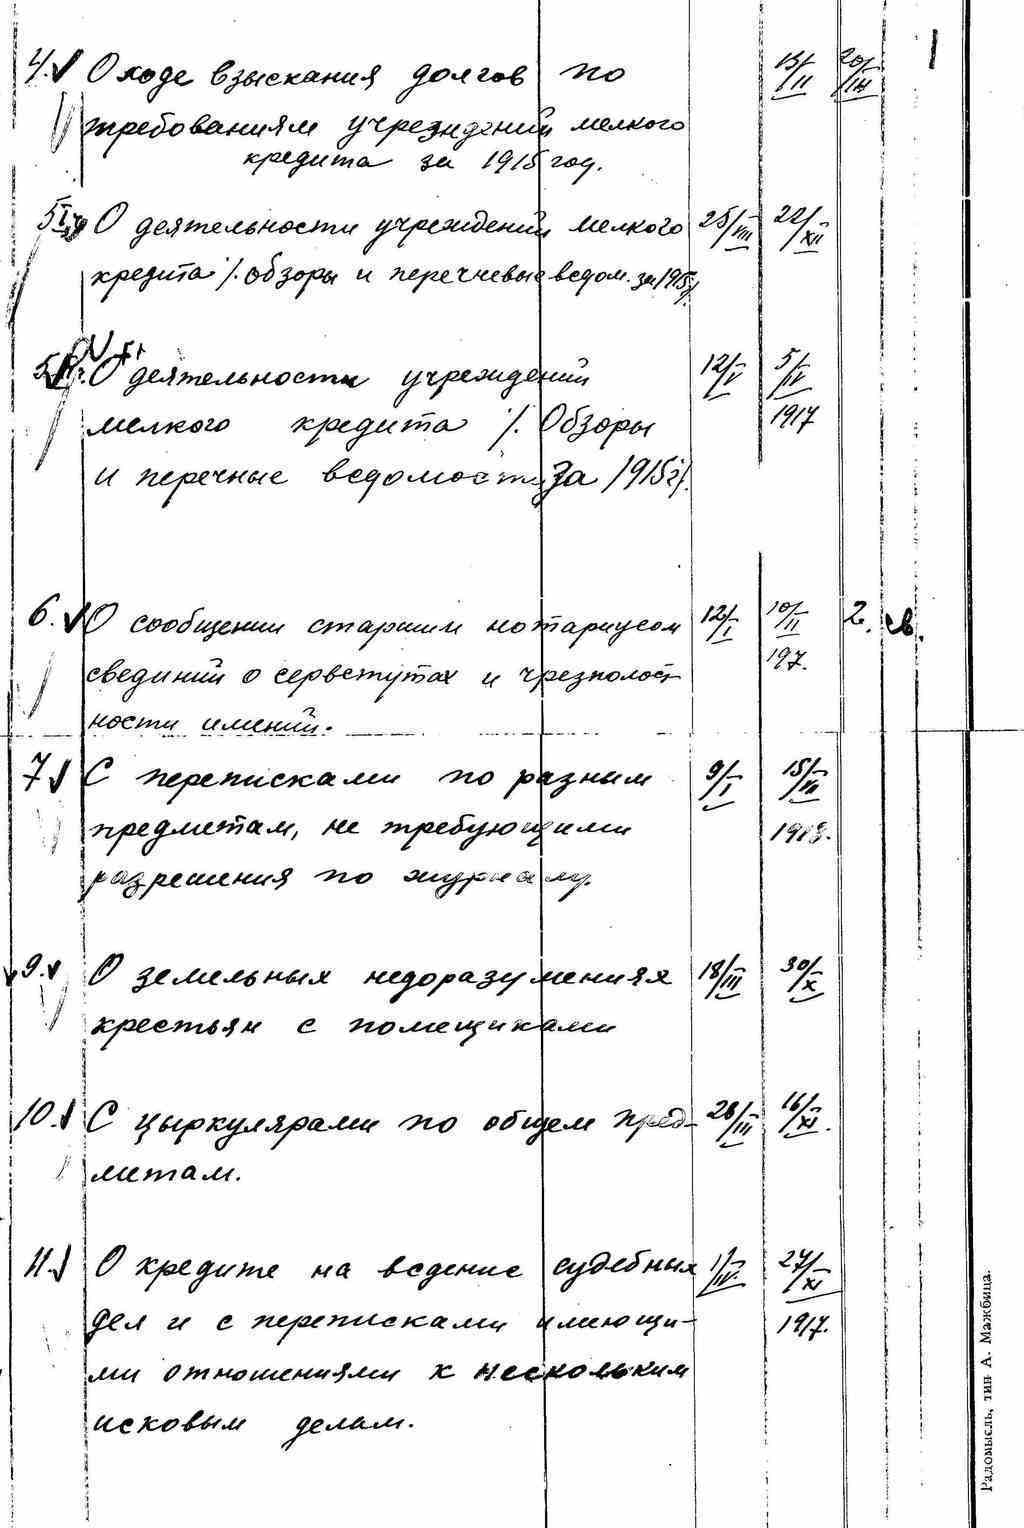 4. О ходе взыскания долгов по 13/II 20/III 1
требованиям учреждений мелкого
кредита за 1915 год.
5 I ч О деятельности учреждений мелкого 25/VIII 22/XII
кредита /. обзоры и перечневые ведом. за 1915 г/.
5 О деятельности учреждений 12/V 5/IV
мелкого кредита /. Обзоры 1917
и перечные ведомости за 1915 г/.
6. О сообщении старшим нотариусом 12/I 10/II 2. св.
свединий о серветутах и чрезполос- 197.
ности имений.
7 С переписками по разным 9/I 15/VII
предметам, не требующими 1918.
разрешения по журналу.
9. О земельных недоразумениях 18/III 30/X
крестьян с помещиками
10. С цыркулярами по общем пред- 28/III 16/XI.
метам.
11. О кредите на ведение судебных 1/IV. 27/XI
дел и с переписками имеющи- 1917.
ми отношениями к нескольким
исковым делам.
Радомысль, тип А. Мажбица.